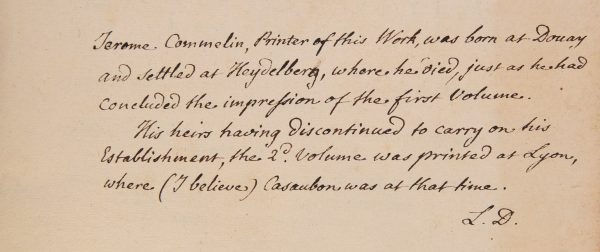 Jerome Commelin, Printer of this Work, was born at Douay
and settled at Heydelberg, where he died, just as he had
concluded the impression of the first Volume.
His heirs having discontinued to carry on his
Establishment, the 2d. Volume was printed at Lyon,
where (I believe) Casaubon was at that time.
L. D.